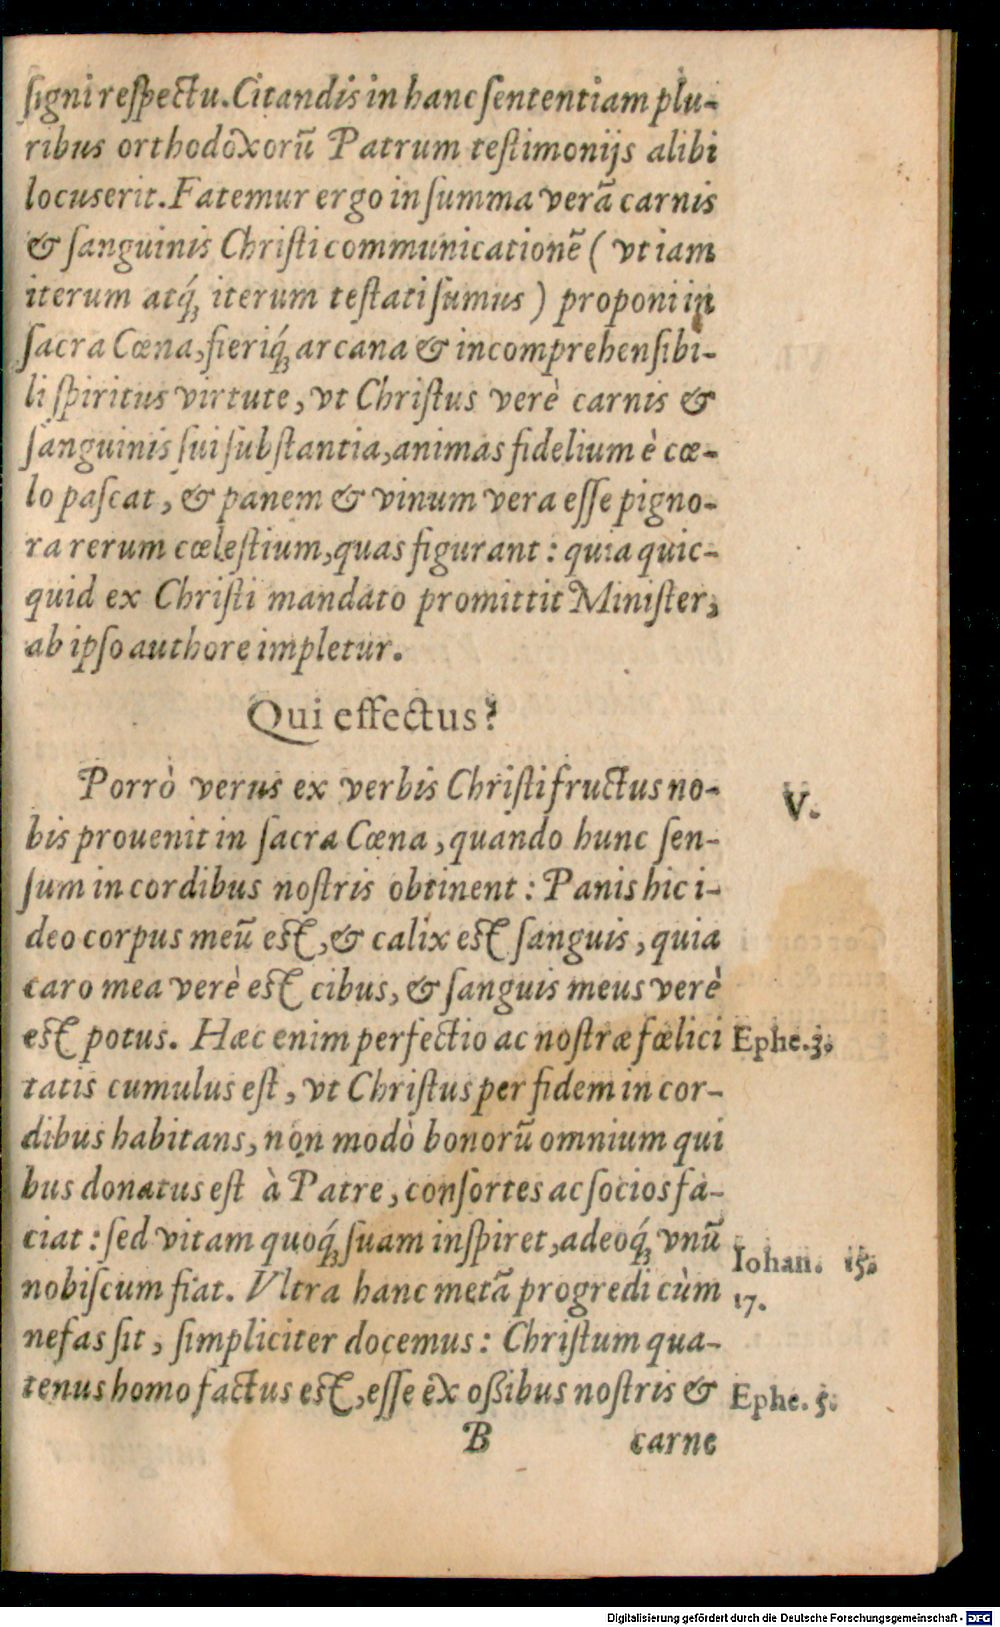 signi respectu. Citandis in hanc sententiam plu-
ribus orthodoxorũ Patrum testimonijs alibi
locus erit. Fatemur ergo in summa verã carnis
& sanguinis Christi communicationẽ ( vt iam
iterum atq́ꝫ iterum testati sumus ) proponi in
sacra Cœna, fieriq́ꝫ arcana & incomprehensibi-
li spiritus virtute, vt Christus verè carnis &
sanguinis sui substantia, animas fidelium è cœ-
lo pascat, & panem & vinum vera esse pigno-
ra rerum cœlestium, quas figurant: quia quic-
quid ex Christi mandato promittit Minister,
ab ipso authore impletur.
Qui effectus?
Porrò verus ex verbis Christi fructus no-
V.
bis prouenit in sacra Cœna, quando hunc sen-
sum in cordibus nostris obtinent: Panis hic i-
deo corpus meũ est, & calix est sanguis, quia
caro mea verè est cibus, & sanguis meus verè
est potus. Hæc enim perfectio ac nostræ fœlici
Ephe.3.
tatis cumulus est, vt Christus per fidem in cor-
dibus habitans, non modò bonorũ omnium qui
bus donatus est à Patre, consortes ac socios fa-
ciat: sed vitam quoq́ꝫ suam inspiret, adeoq́ꝫ vnũ
Iohan. 15.
nobiscum fiat. Vltra hanc metã progredi cùm
17.
nefas sit, simpliciter docemus: Christum qua-
tenus homo factus est, esse ex oßibus nostris &
Ephe. 5.
B carne
Digitalisierung gefördert durch die Deutsche Forschungsgemeinschaft - DFG